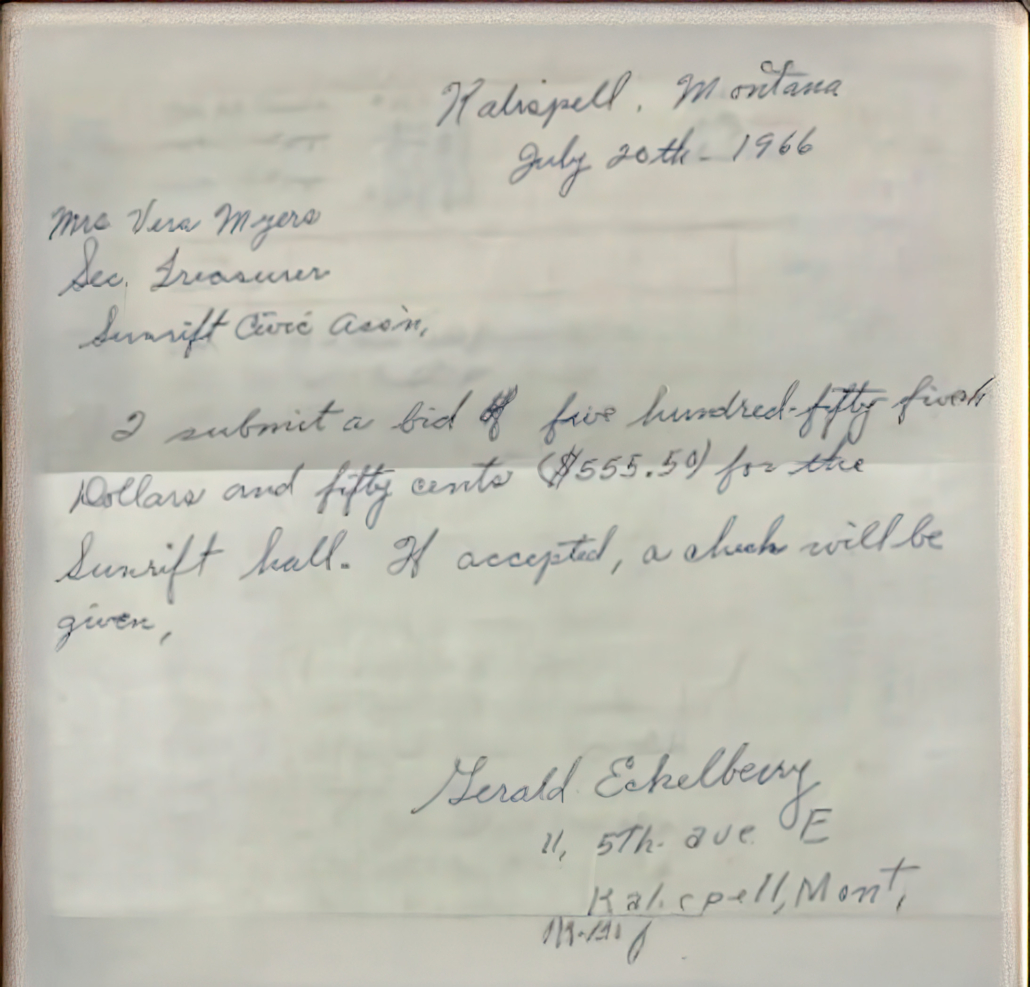 Kalispell, Montana
July 20th - 1966
Mrs Vera Myers
Sec. Treasurer
Sunrift Civic Ass'n,
I submit a bid of five hundred-fifty five
Dollars and fifty cents ($555.50) for the
Sunrift hall. If accepted, a check will be
given,
Gerald Eckelberry
11, 5Th. ave E
Kalispell, Mont,